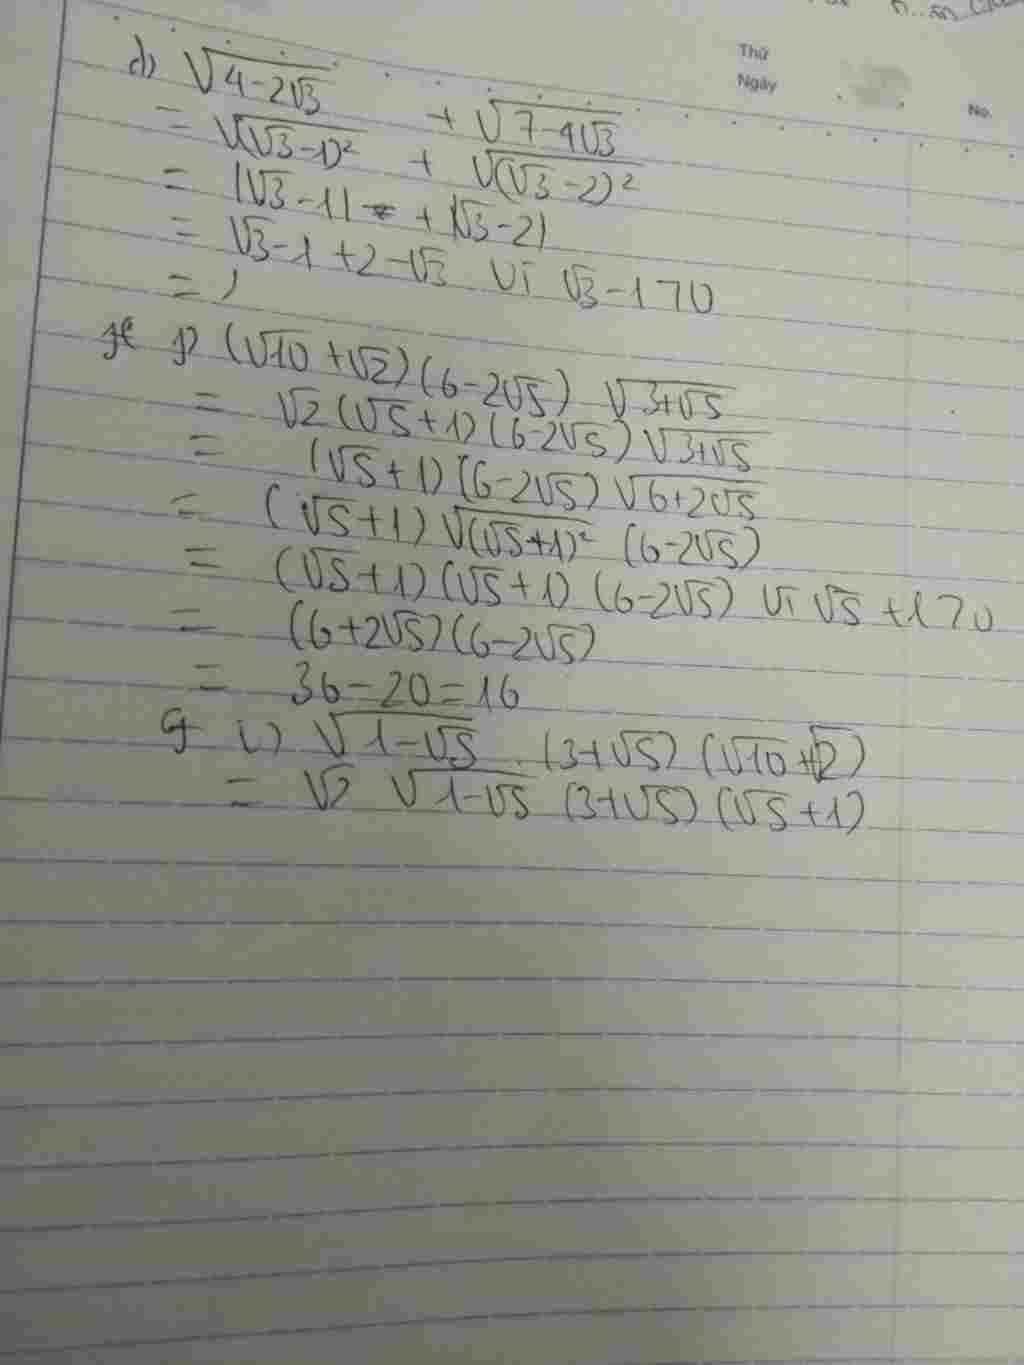 Thứ
Ngày
No.
d) √(4-2√3) + √(7-4√3)
= √((√3-1)²) + √((√3-2)²)
= |√3-1| + |√3-2|
= √3-1+2-√3 Vì √3-1>0
= 1
f) (√10+√2)(6-2√5) √(3+√5)
= √2(√5+1)(6-2√5)√(3+√5)
= (√5+1)(6-2√5)√(6+2√5)
= (√5+1)√((√5+1)²) (6-2√5)
= (√5+1)(√5+1)(6-2√5) Vì √5+1>0
= (6+2√5)(6-2√5)
= 36-20=16
i) √(1-√5) . (3+√5)(√10+√2)
= √2 √(1-√5) (3+√5)(√5+1)